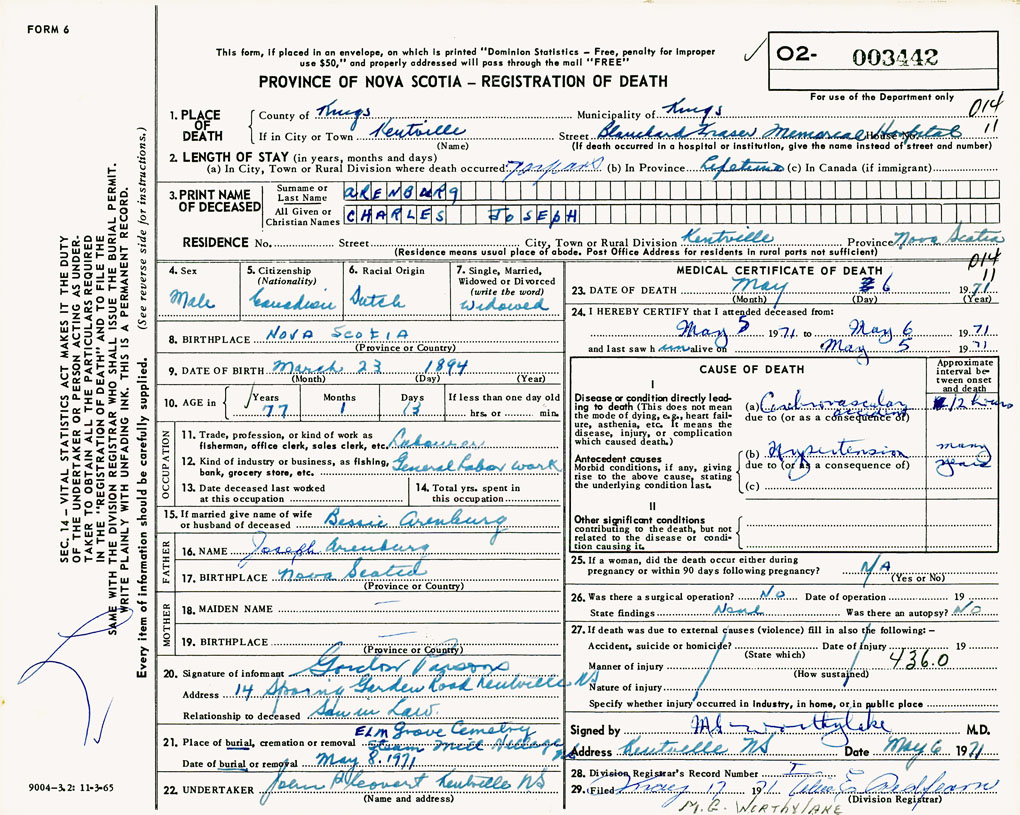 FORM 6
This form, if placed in an envelope, on which is printed "Dominion Statistics – Free, penalty for improper
use $50," and properly addressed will pass through the mail "FREE"
O2- 003442
PROVINCE OF NOVA SCOTIA – REGISTRATION OF DEATH
For use of the Department only
014
11
1. PLACE OF DEATH
County of Kings Municipality of Kings
If in City or Town Kentville Street Blanchard Fraser Memorial Hospital House No.
(Name) (If death occurred in a hospital or institution, give the name instead of street and number)
2. LENGTH OF STAY (in years, months and days)
(a) In City, Town or Rural Division where death occurred (b) In Province Lifetime (c) In Canada (if immigrant)
3. PRINT NAME OF DECEASED
Surname or Last Name ARENBURG
All Given or Christian Names CHARLES JOSEPH
RESIDENCE No. Street City, Town or Rural Division Kentville Province Nova Scotia
(Residence means usual place of abode. Post Office Address for residents in rural parts not sufficient)
4. Sex
Male
5. Citizenship
(Nationality)
Canadian
6. Racial Origin
Dutch
7. Single, Married,
Widowed or Divorced
(write the word)
Widowed
8. BIRTHPLACE NOVA SCOTIA
(Province or Country)
9. DATE OF BIRTH March 23 1894
(Month) (Day) (Year)
10. AGE in
Years Months Days If less than one day old
77 1 13 hrs. or min.
OCCUPATION
11. Trade, profession, or kind of work as
fisherman, office clerk, sales clerk, etc. Labourer
12. Kind of industry or business, as fishing,
bank, grocery store, etc. General Labor work
13. Date deceased last worked
at this occupation
14. Total yrs. spent in
this occupation
15. If married give name of wife
or husband of deceased Bessie Arenburg
FATHER
16. NAME Joseph Arenburg
17. BIRTHPLACE Nova Scotia
(Province or Country)
MOTHER
18. MAIDEN NAME —
19. BIRTHPLACE —
(Province or Country)
20. Signature of informant Gordon Parsons
Address 14 Spring Garden Road Kentville NS
Relationship to deceased Son in Law.
21. Place of burial, cremation or removal ELM Grove Cemetry
Steam Mill Village NS
Date of burial or removal May 8, 1971
22. UNDERTAKER Kentville NS
(Name and address)
014
11
MEDICAL CERTIFICATE OF DEATH
23. DATE OF DEATH May 6 1971
(Month) (Day) (Year)
24. I HEREBY CERTIFY that I attended deceased from:
May 5 1971 to May 6 1971
and last saw h im alive on May 5 1971
CAUSE OF DEATH
Approximate
interval be-
tween onset
and death
I
Disease or condition directly lead-
ing to death (This does not mean
the mode of dying, e.g., heart fail-
ure, asthenia, etc. It means the
disease, injury, or complication
which caused death.)
(a) Cerebrovascular accident 12 hours
due to (or as a consequence of)
Antecedent causes
Morbid conditions, if any, giving
rise to the above cause, stating
the underlying condition last.
(b) Hypertension many years
due to (or as a consequence of)
(c)
II
Other significant conditions
contributing to the death, but not
related to the disease or condi-
tion causing it.
25. If a woman, did the death occur either during
pregnancy or within 90 days following pregnancy? N/A
(Yes or No)
26. Was there a surgical operation? No Date of operation 19
State findings None Was there an autopsy? No
27. If death was due to external causes (violence) fill in also the following: –
Accident, suicide or homicide? Date of injury 19
(State which) 436.0
Manner of injury
(How sustained)
Nature of injury
Specify whether injury occurred in Industry, in home, or in public place
Signed by M.G. Worthylake M.D.
Address Kentville NS Date May 6 1971
28. Division Registrar's Record Number
29. Filed May 17 1971
(Division Registrar)
M. G. WORTHYLAKE
SEC. 14 – VITAL STATISTICS ACT MAKES IT THE DUTY
OF THE UNDERTAKER OR PERSON ACTING AS UNDER-
TAKER TO OBTAIN ALL THE PARTICULARS REQUIRED
IN THE "REGISTRATION OF DEATH" AND TO FILE THE
SAME WITH THE DIVISION REGISTRAR WHO SHALL ISSUE THE BURIAL PERMIT.
WRITE PLAINLY WITH UNFADING INK. THIS IS A PERMANENT RECORD.
Every item of information should be carefully supplied. (See reverse side for instructions.)
9004-3.2: 11-3-65